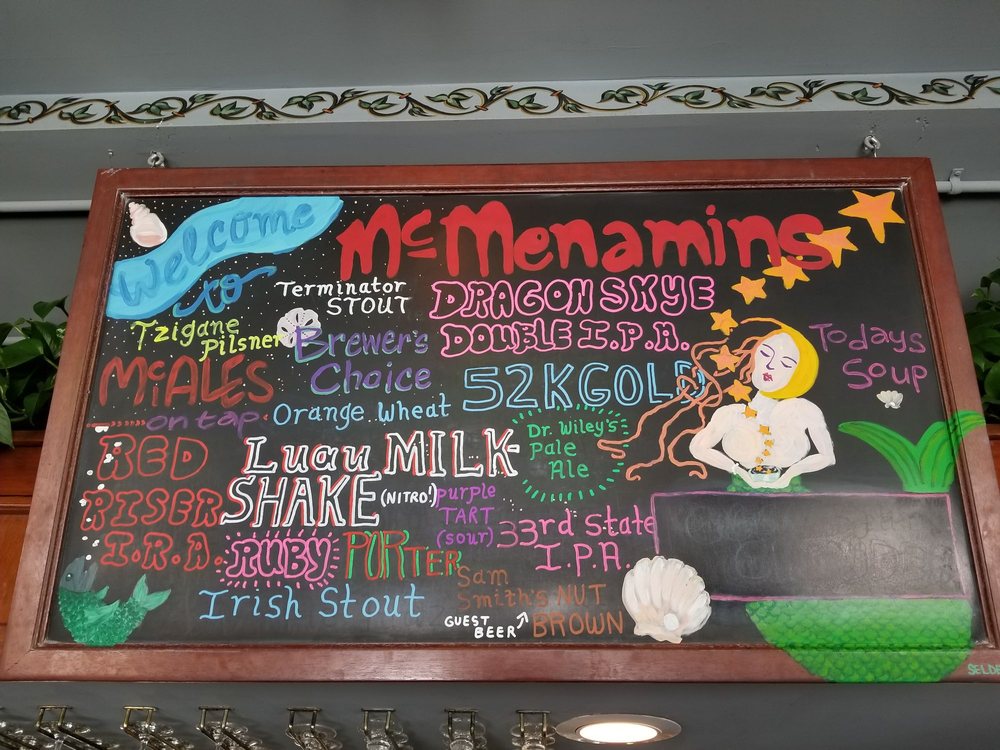 Welcome
to
McMenamins
Terminator
STOUT
DRAGON SKYE
DOUBLE I.P.A.
Tzigane
Pilsner
Brewer's
Choice
Todays
Soup
McALES
on tap
Orange Wheat
52K GOLD
Dr. Wiley's
Pale
Ale
RED
RISER
I.R.A.
Luau MILK
SHAKE (NITRO!)
purple
TART
(sour)
33rd State
I.P.A.
RUBY
PORTER
Irish Stout
Sam
Smith's NUT
BROWN
GUEST
BEER